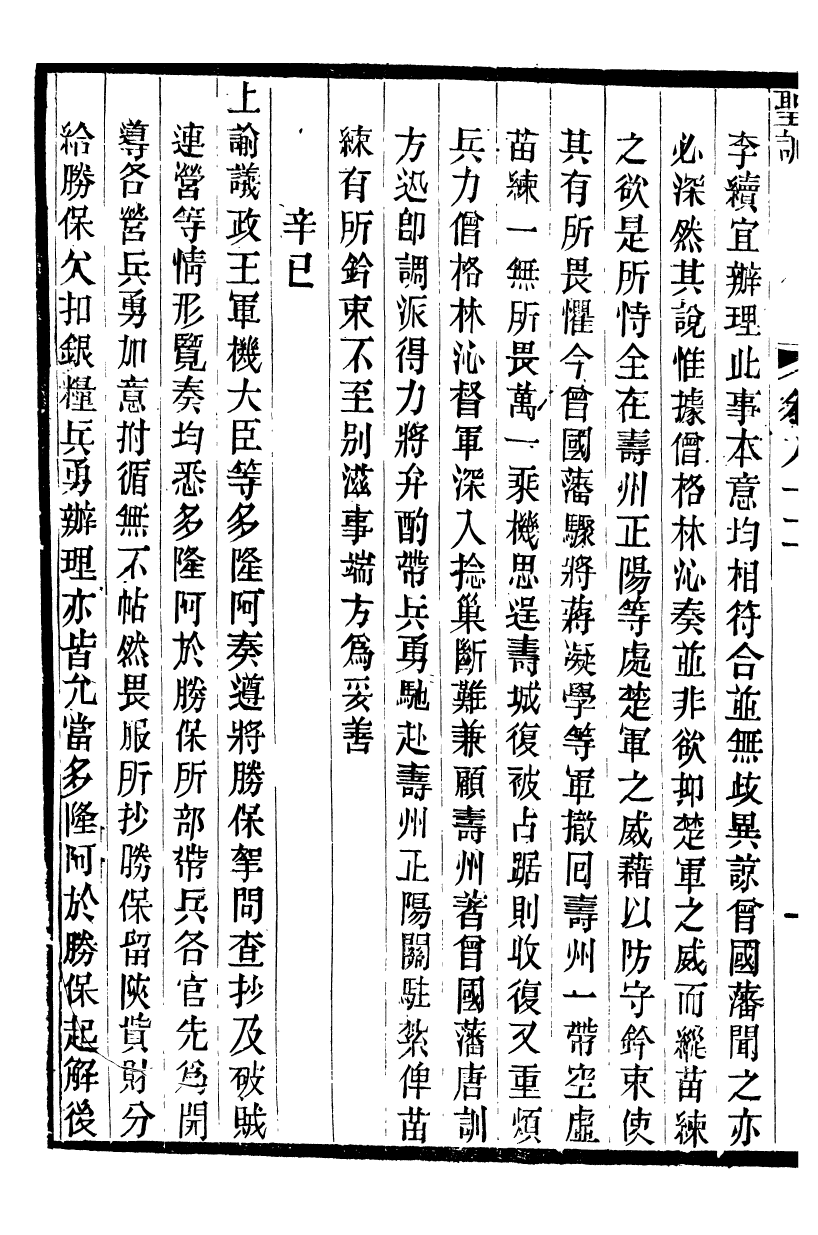 聖訓 卷八十二 一
李續宜辦理此事本意均相符合並無歧異諒曾國藩聞之亦
必深然其說惟據僧格林沁奏並非欲抑楚軍之威而縱苗練
之欲是所恃全在壽州正陽等處楚軍之威藉以防守鈐束使
其有所畏懼今曾國藩驟將蔣凝學等軍撤回壽州一帶空虛
苗練一無所畏萬一乘機思逞壽城復被占踞則收復又重煩
兵力僧格林沁督軍深入捻巢斷難兼顧壽州著曾國藩唐訓
方迅卽調派得力將弁酌帶兵勇馳赴壽州正陽關駐紮俾苗
練有所鈐束不至別滋事端方爲妥善
辛巳
上諭議政王軍機大臣等多隆阿奏遵將勝保拏問查抄及破賊
連營等情形覽奏均悉多隆阿於勝保所部帶兵各官先爲開
導各營兵勇加意拊循無不帖然畏服所抄勝保留陝貲財分
給勝保欠扣銀糧兵勇辦理亦皆允當多隆阿於勝保起解後